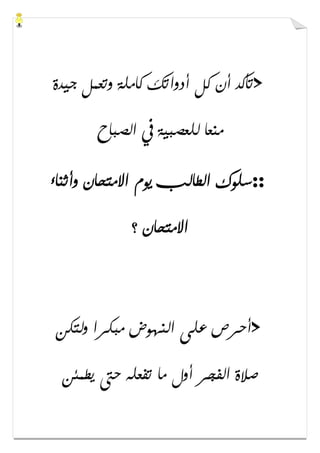 >تأكد أن كل أدواتك كاملة وتعمل جيدة
منعا للعصبية في الصباح
::سلوك الطالب يوم الامتحان وأثناء
الامتحان ؟
>أحرص على النهوض مبكرا ولتكن
صلاة الفجر أول ما تفعله حتى يطمئن